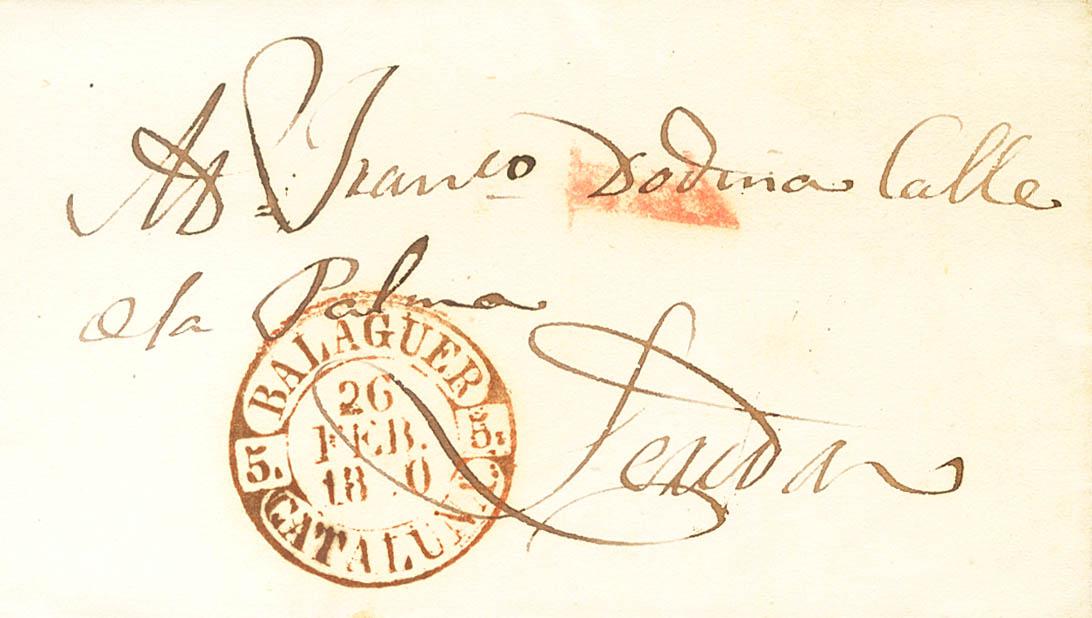 A D. Franco Dodina Calle
de la Palma
Lerida
BALAGUER
26
FEB.
18 0
5. 5.
CATALUÑA